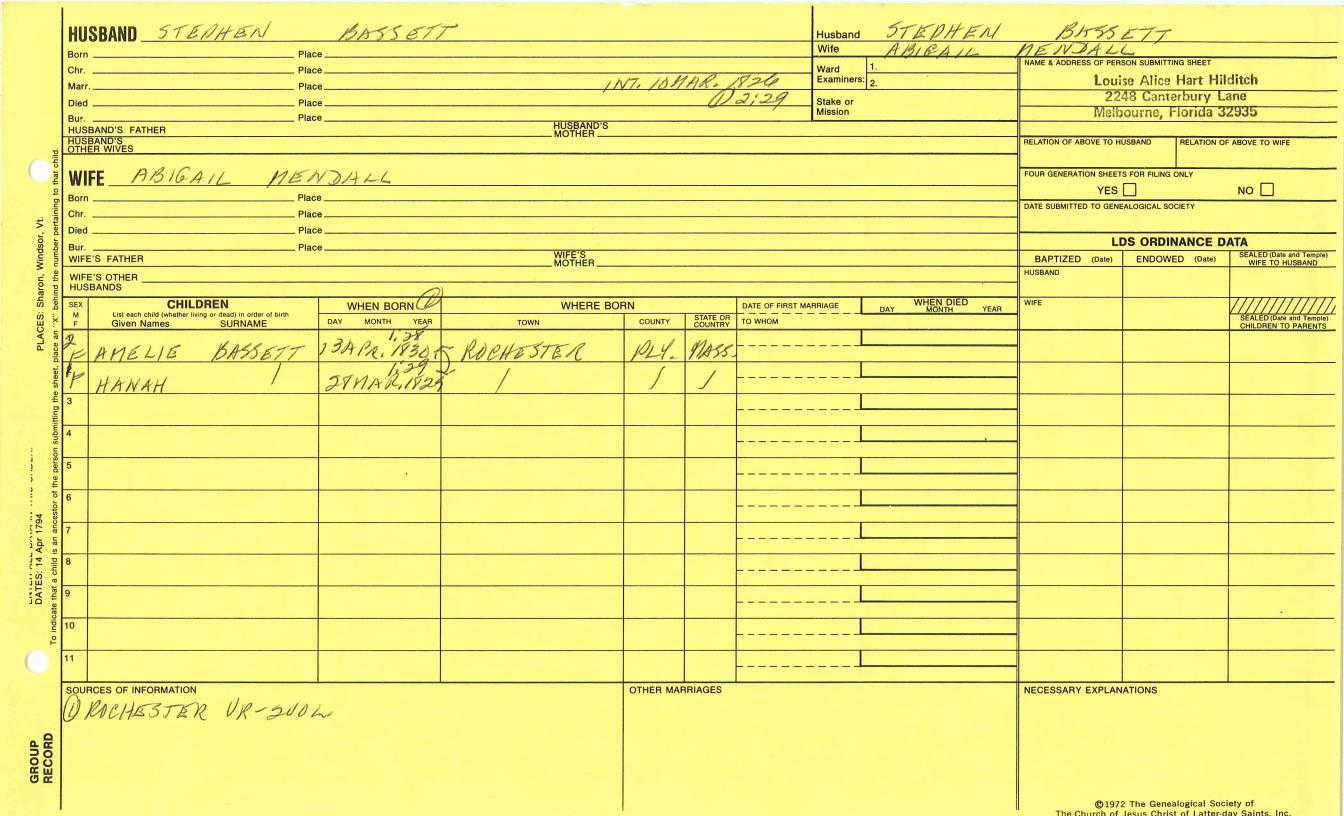 HUSBAND STEPHEN BASSETT
Born Place
Chr. Place
Marr. Place INT. 10 MAR. 1826
Died Place ① 2:29
Bur. Place
HUSBAND'S FATHER HUSBAND'S MOTHER
HUSBAND'S OTHER WIVES
Husband STEPHEN BASSETT
Wife ABIGAIL MENDALL
Ward Examiners: 1.
2.
Stake or Mission
NAME & ADDRESS OF PERSON SUBMITTING SHEET
Louise Alice Hart Hilditch
2248 Canterbury Lane
Melbourne, Florida 32935
RELATION OF ABOVE TO HUSBAND RELATION OF ABOVE TO WIFE
FOUR GENERATION SHEETS FOR FILING ONLY
YES NO
DATE SUBMITTED TO GENEALOGICAL SOCIETY
WIFE ABIGAIL MENDALL
Born Place
Chr. Place
Died Place
Bur. Place
WIFE'S FATHER WIFE'S MOTHER
WIFE'S OTHER HUSBANDS
LDS ORDINANCE DATA
BAPTIZED (Date) ENDOWED (Date) SEALED (Date and Temple) WIFE TO HUSBAND
HUSBAND
WIFE
SEALED (Date and Temple) CHILDREN TO PARENTS
SEX M F
CHILDREN
List each child (whether living or dead) in order of birth
Given Names SURNAME
WHEN BORN ①
DAY MONTH YEAR
WHERE BORN
TOWN COUNTY STATE OR COUNTRY
DATE OF FIRST MARRIAGE
TO WHOM
WHEN DIED
DAY MONTH YEAR
1:28
2 F AMELIE BASSETT 13 APR. 1830 ROCHESTER PLY. MASS.
1:29
1 F HANAH / 28 MAR. 1829 / / /
3
4
5
6
7
8
9
10
11
SOURCES OF INFORMATION
① ROCHESTER VR-2VOL
OTHER MARRIAGES
NECESSARY EXPLANATIONS
©1972 The Genealogical Society of
The Church of Jesus Christ of Latter-day Saints, Inc.
PLACES: Sharon, Windsor, Vt.
DATES: 14 Apr 1794
To indicate that a child is an ancestor of the person submitting the sheet, place an "X" behind the number pertaining to that child.
GROUP RECORD